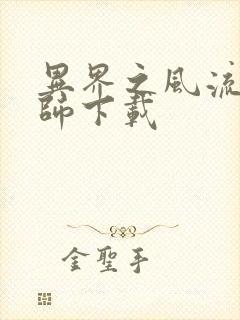 異界之風流
師下載
金聖手